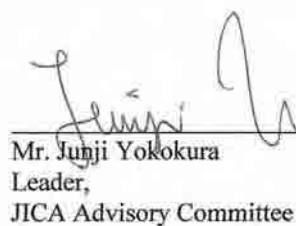 Junji Y
Mr. Junji Yokokura
Leader,
JICA Advisory Committee